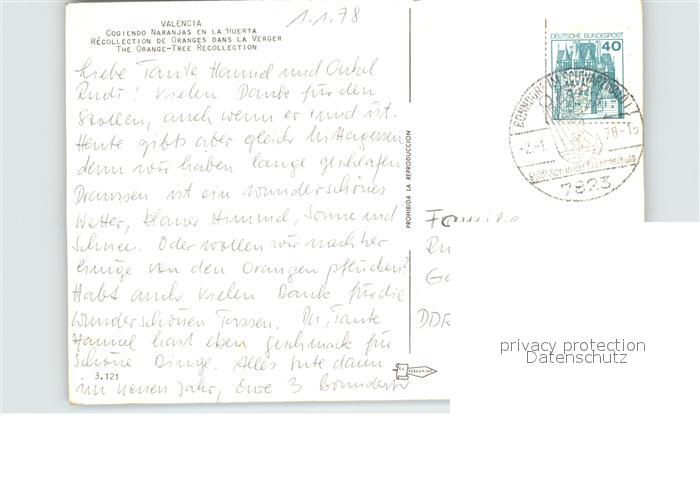 VALENCIA
COGIENDO NARANJAS EN LA HUERTA
RÉCOLLECTION DE ORANGES DANS LA VERGER
THE ORANGE-TREE RECOLLECTION
1.1.78
Liebe Tante Hannel und Onkel
Rudi! Vielen Dank für den
Stollen, auch wenn er rund ist.
Heute gibts aber gleich Mittagessen
denn wir haben lange geschlafen
Draussen ist ein wunderschönes
Wetter, blauer Himmel, Sonne und
Schnee. Oder wollen wir nachher
einige von den Orangen pflücken?
Habt auch vielen Dank für die
wunderschönen Tassen. Du, Tante
Hannel hast eben geschmack für
schöne Dinge. Alles Gute dann
im neuen Jahr, Eure 3
3.121
PROHIBIDA LA REPRODUCCION
DEUTSCHE BUNDESPOST
40
BONNDORF IM SCHWARZWALD
-2.-1. 78-15
7823
Familie
DDR
privacy protection
Datenschutz